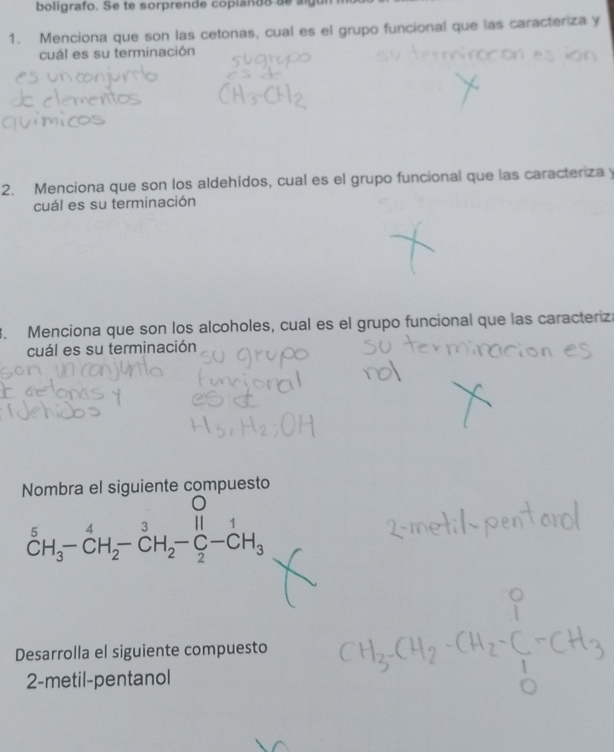 bolígrafo. Se te sorprende copiando de algún
1. Menciona que son las cetonas, cual es el grupo funcional que las caracteriza y
cuál es su terminación
es un conjunto
de elementos
químicos
su grupo
es d
CH3-CH2
su terminacon es ion
2. Menciona que son los aldehídos, cual es el grupo funcional que las caracteriza y
cuál es su terminación
3. Menciona que son los alcoholes, cual es el grupo funcional que las caracteriza
cuál es su terminación
son un conjunto
cetonas y
su grupo
funcional
es d
H3,H2;OH
su terminacion es
nol
Nombra el siguiente compuesto
O
||
5 4 3 1
CH3-CH2-CH2-C-CH3
2
2-metil-pentanol
Desarrolla el siguiente compuesto
2-metil-pentanol
O
|
CH3-CH2-CH2-C-CH3
|
O